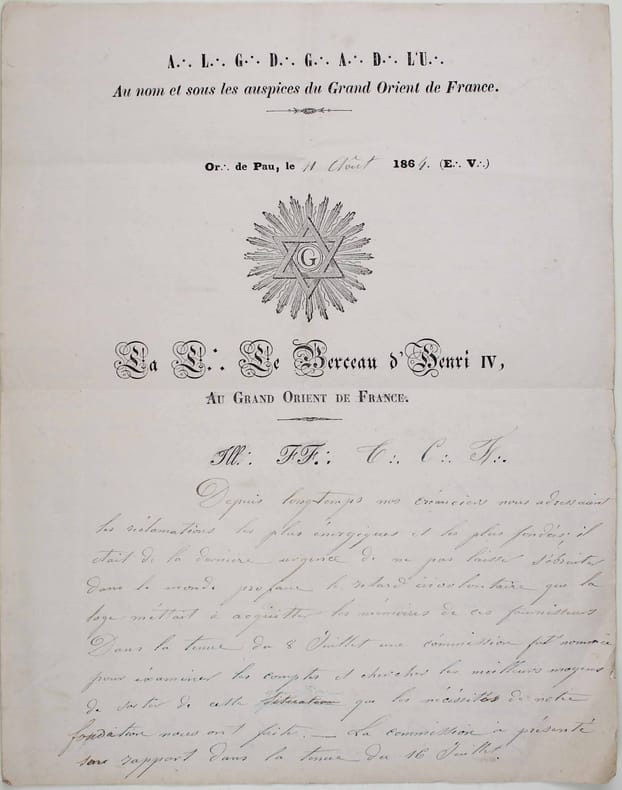 A∴ L∴ G∴ D∴ G∴ A∴ D∴ L'U∴
Au nom et sous les auspices du Grand Orient de France.
Or∴ de Pau, le 11 Août 1864. (E∴ V∴)
G
La L∴ Le Berceau d'Henri IV,
Au Grand Orient de France.
Ill∴ FF∴ T∴ C∴ F∴
Depuis longtemps nos créanciers nous adressaient
les réclamations les plus énergiques et les plus fondées; il
était de la dernière urgence de ne pas laisser s'ébruiter
dans le monde profane le retard involontaire que la
loge mettait à acquitter les mémoires de ces fournisseurs
Dans la tenue du 8 Juillet une commission fut nommée
pour éxaminer les comptes et chercher les meilleurs moyens
de sortir de cette que les nécessités de notre
fondation nous ont faite. — La commission à présenté
son rapport dans la tenue du 16 Juillet.